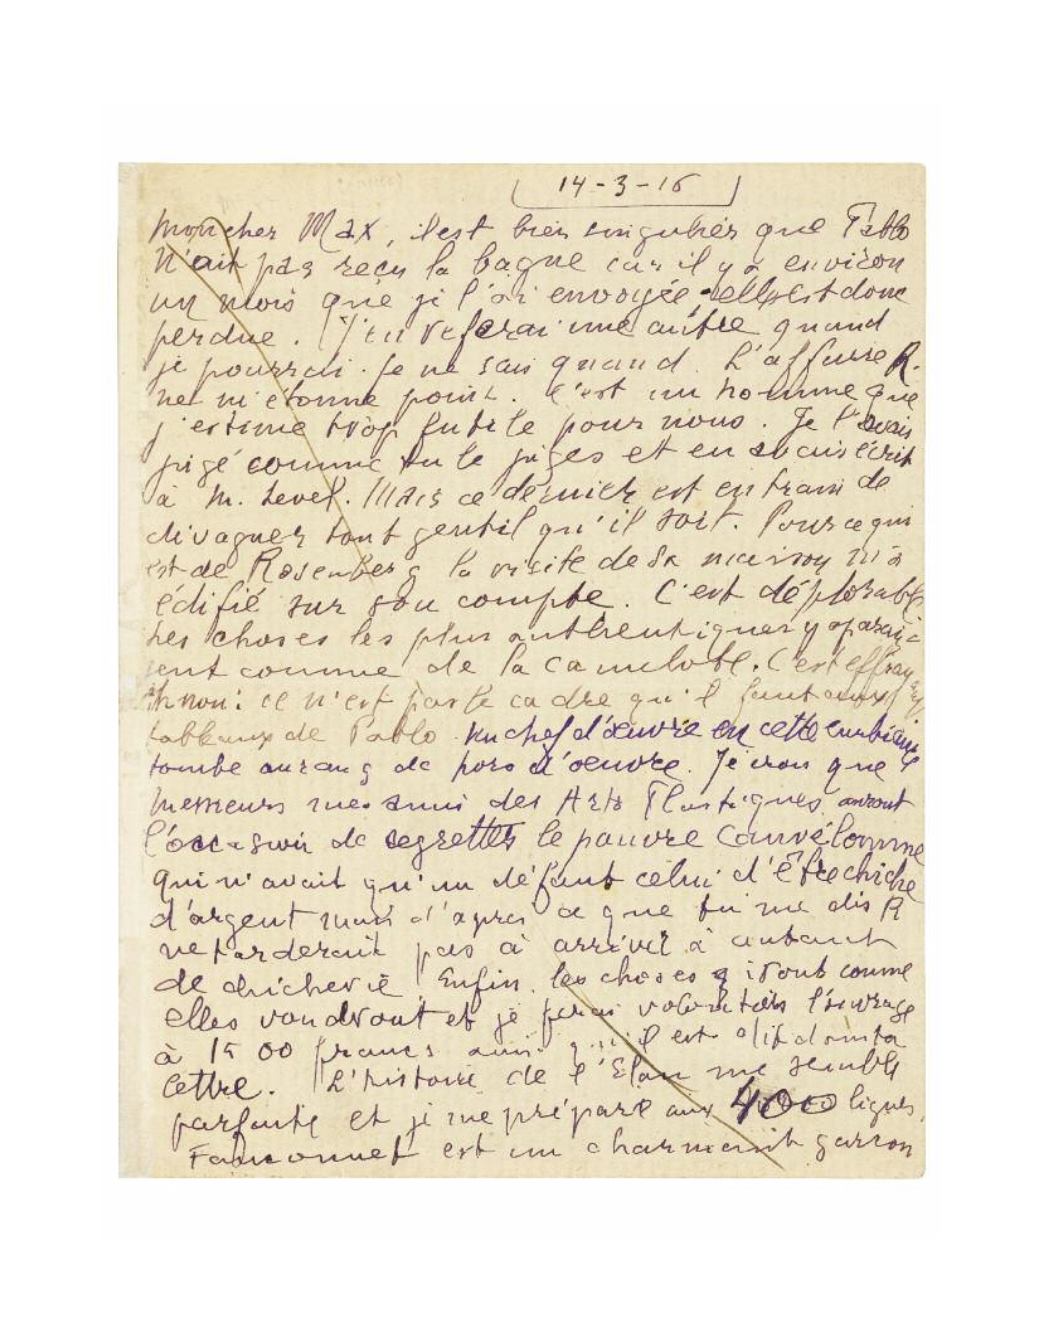 14-3-16
Mon cher Max, il est bien singulier que Pablo
N'ait pas reçu la bague car il y a environ
un mois que je l'ai envoyée, elle est donc
perdue. J'en referai une autre quand
je pourrai. Je ne sais quand. L'affaire R.
ne m'étonne point. C'est un homme que
j'estime trop futile pour nous. Je l'avais
pigé comme tu le piges et en avais écrit
à M. Level. Mais ce dernier est en train de
divaguer tout gentil qu'il soit. Pour ce qui
est de Rosenberg la visite de sa maison m'a
édifié sur son compte. C'est déplorable
Les choses les plus authentiques y aparais-
sent comme de la camelote. C'est effrayant
Ah non: ce n'est pas le cadre qu'il faut aux
tableaux de Pablo. Un chef d'œuvre en cette ambiance
tombe au rang de hors d'oeuvre. Je crois que
Messieurs mes amis des Arts Plastiques auront
l'occasion de regretter le pauvre Canvélomme
qui n'avait qu'un défaut celui d'être chiche
d'argent mais d'après ce que tu me dis R
ne tarderait pas à arriver à autant
de chicherie. Enfin, les choses iront comme
elles voudront et je ferai volontiers l'ouvrage
à 1500 francs ainsi qu'il est dit dans ta
lettre. L'histoire de l'Élan me semble
parfaite et je me prépare aux 400 lignes.
Fauconnet est un charmant garçon